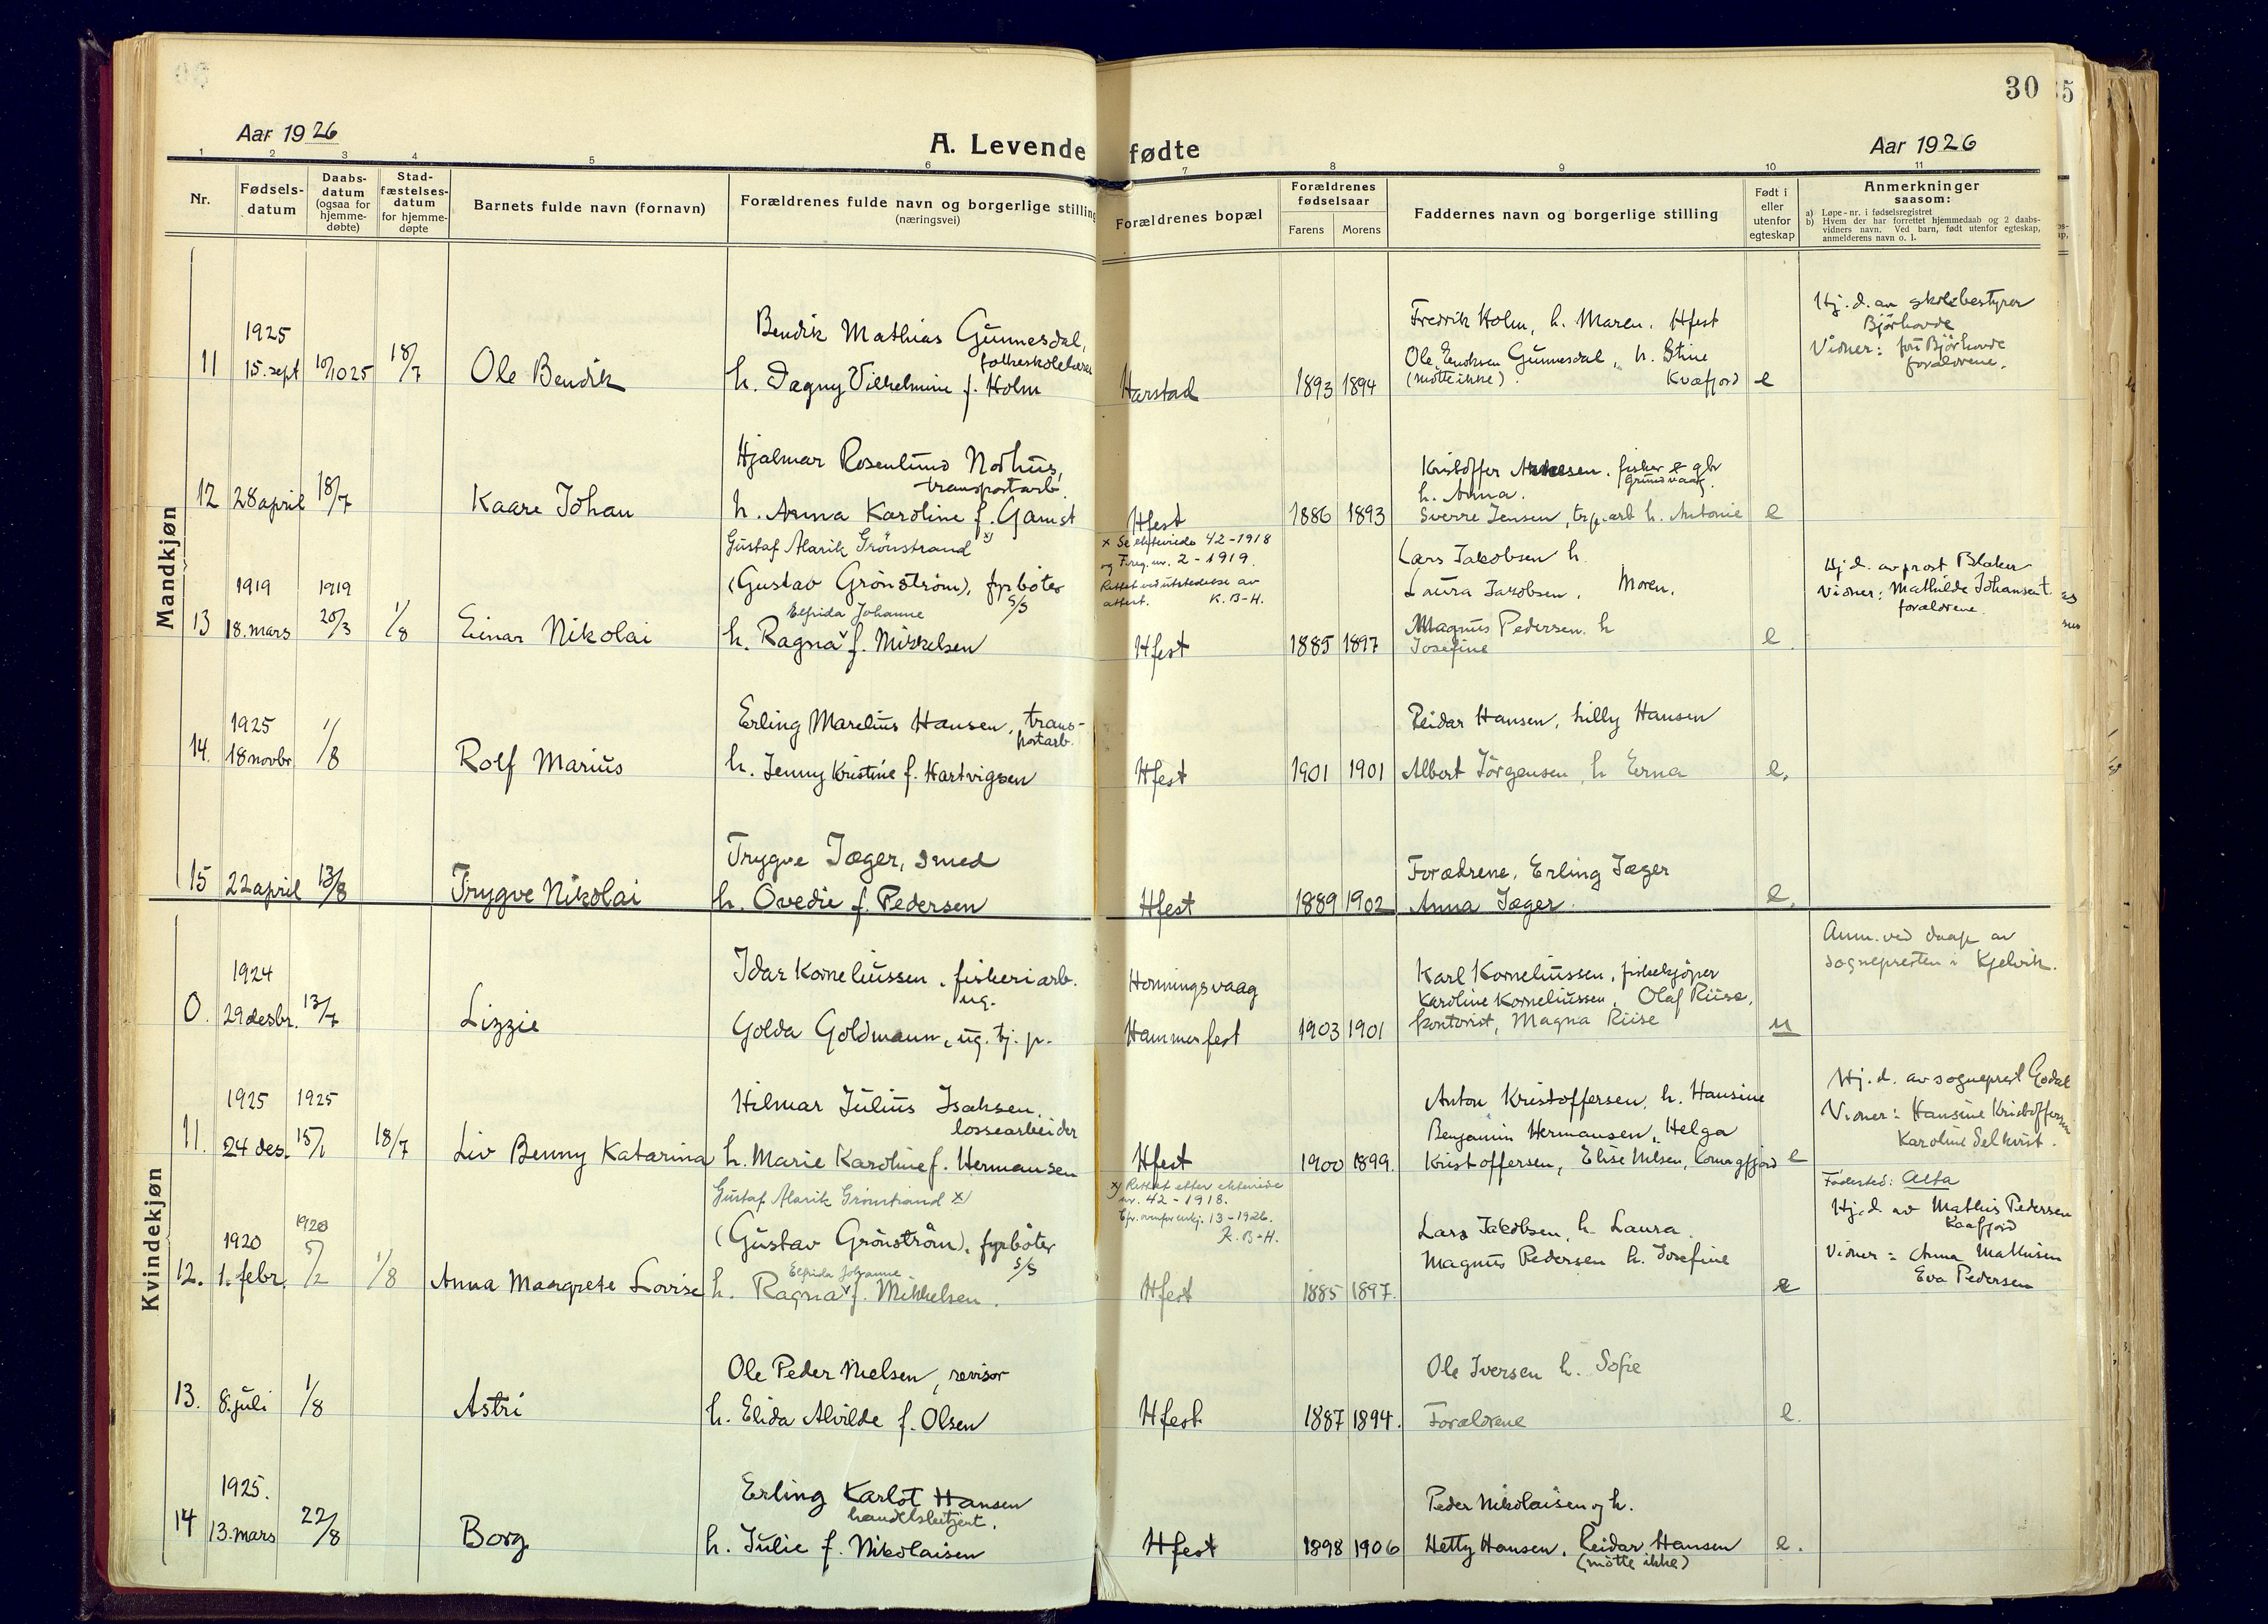 30
Aar 1926
A. Levende fødte
Aar 1926
1 2 3 4 5 6 7 8 9 10 11
Nr.
Fødsels-
datum
Daabs-
datum
(ogsaa for
hjemme-
døbte)
Stad-
fæstelses-
datum
for hjemme-
døpte
Barnets fulde navn (fornavn)
Forældrenes fulde navn og borgerlige stilling
(næringsvei)
Forældrenes bopæl
Forældrenes
fødselsaar
Farens Morens
Faddernes navn og borgerlige stilling
Født i
eller
utenfor
egteskap
Anmerkninger
saasom:
a) Løpe-nr. i fødselsregistret
b) Hvem der har forrettet hjemmedaab og 2 daabs-
vidners navn. Ved barn, født utenfor egteskap,
anmelderens navn o. l.
Mandkjøn
11
1925
15. sept
10/10 25
18/7
Ole Bendik
Bendik Mathias Gunnesdal,
folkeskolelærer
h. Dagny Vilhelmine f. Holm
Harstad
1893 1894
Fredrik Holm, h. Maren. Hfest
Ole Enoksen Gunnesdal, h. Stine
(møtte ikke). Kvæfjord
e
Hj. d. av skolebestyrer
Bjørhovde
Vidner: fru Bjørhovde
forældrene.
12
28 april
18/7
Kaare Johan
Hjalmar Rosenlund Norhus,
transportarb.
h. Anna Karoline f. Gamst
Hfest
1886 1893
Kristoffer Arnesen, fisker e gbr
Grundvaag.
h. Anna.
Sverre Jensen, trp.arb h. Antonie
e
13
1919
18. mars
1919
20/3
1/8
Einar Nikolai
Gustaf Alarik Grönstrand x)
(Gustav Grönström), fyrbøter
S/S
Elfrida Johanne
h. Ragna v f. Mikkelsen
x Se ekteviede 42-1918
og F.reg. nr. 2-1919.
Rettet ved utstedelse av
attest. K. B-H.
Hfest
1885 1897
Lars Jakobsen h.
Laura Jakobsen, Moren.
Magnus Pedersen. h
Josefine
e
Hj. d. av prost Blaker
Vidner: Mathilde Johansen
forældrene.
14.
1925
18 novbr
1/8
Rolf Marius
Erling Marelius Hansen, trans-
portarb.
h. Jenny Kristine f. Hartvigsen
Hfest
1901 1901
Reidar Hansen, Lilly Hansen
Albert Jörgensen, h Erna
e.
15
22 april
13/8
Trygve Nikolai
Trygve Jæger, smed
h. Ovedie f. Pedersen
Hfest
1889 1902
Forædrene, Erling Jæger
Anna Jæger.
e.
Kvindekjøn
0.
1924
29 desbr.
13/7
Lizzie
Idar Korneliussen, fiskeriarb.
ug.
Golda Goldmann, ug. tj. p.
Honningsvaag
Hammerfest
1903 1901
Karl Korneliussen, fiskekjøper
Karoline Korneliussen, Olaf Riise,
kontorist, Magna Riise
u
Anm. ved daap av
sognepresten i Kjelvik.
11.
1925
24 des.
1925
15/1
18/7
Liv Benny Katarina
Hilmar Julius Isaksen,
lossearbeider
h. Marie Karoline f. Hermansen
Hfest
1900 1899.
Anton Kristoffersen, h. Hansine
Benjamin Hermansen, Helga
Kristoffersen, Elise Nilsen, Komagfjord
e
Hj. d. av sogneprest Godal
Vidner: Hansine Kristoffersen
Karoline Selkvist.
12.
1920
1. febr.
1920
5/2
1/8
Anna Margrete Lovise
Gustaf Alarik Grönstrand x)
(Gustav Grönström), fyrbøter
S/S
Elfrida Johanne
h. Ragna v f. Mikkelsen.
x) Rettet efter ekteviede
nr. 42-1918.
Cfr. ovenfor mkj. 13-1926.
K. B-H.
Hfest
1885 1897.
Lars Jakobsen, h. Laura.
Magnus Pedersen h. Josefine
e
Fødested: Alta
Hj. d. av Mathis Pedersen
Kaafjord
Vidner: Anna Mathisen
Eva Pedersen
13.
8. juli
1/8
Astri
Ole Peder Nielsen, revisor
h. Elida Alvilde f. Olsen
Hfest
1887 1894.
Ole Iversen h. Sofie
Forældrene
e.
14
1925.
13. mars
22/8
Borg
Erling Karlot Hansen
handelsbetjent.
h. Julie f. Nikolaisen
Hfest
1898 1906
Peder Nikolaisen og h.
Hetty Hansen, Reidar Hansen
(møtte ikke)
e.